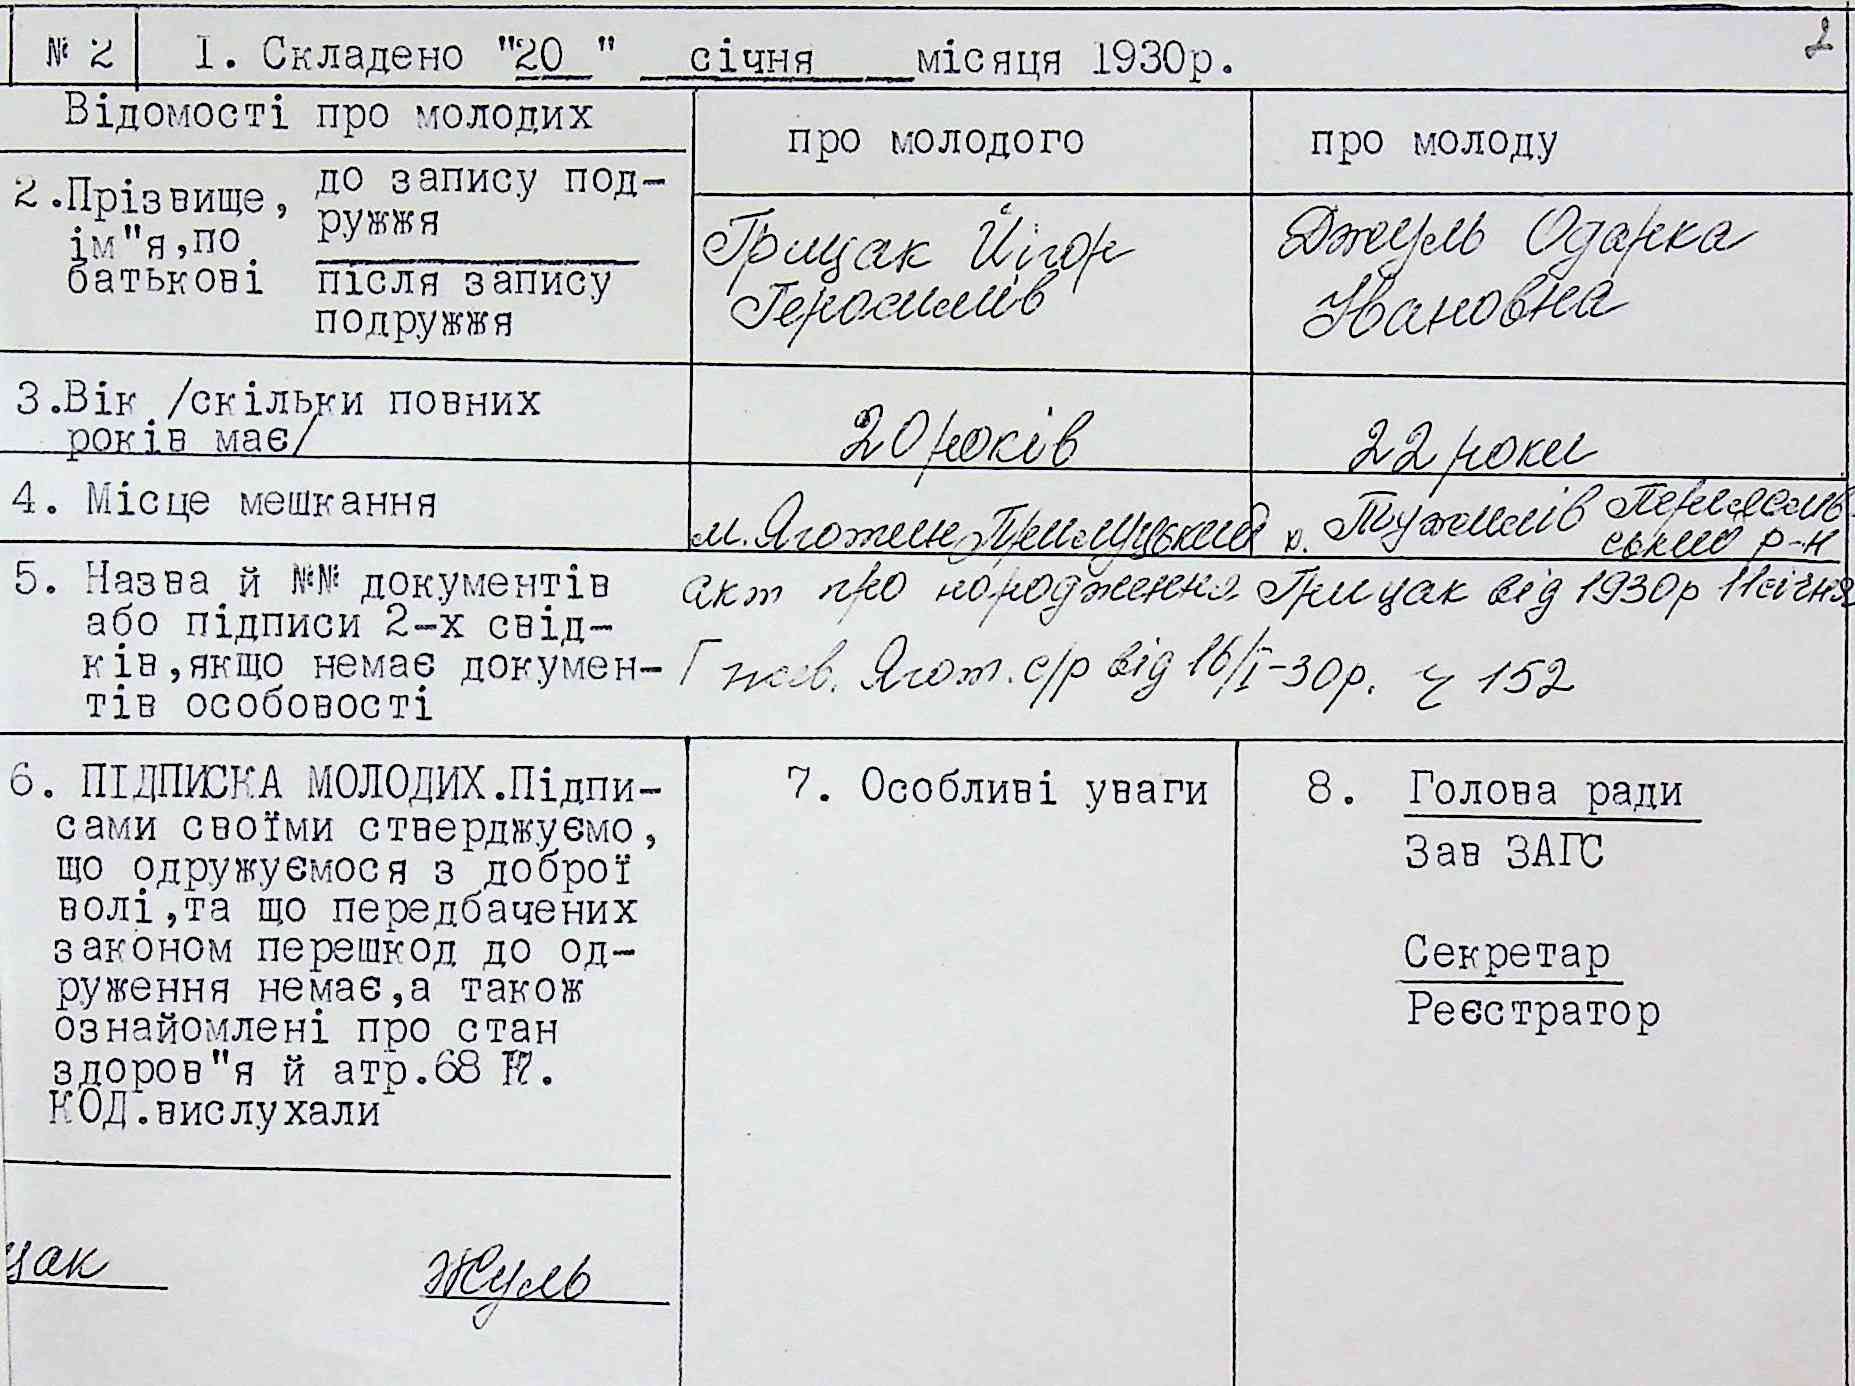 № 2 І. Складено "20 " січня місяця 1930р. 2
Відомості про молодих
про молодого
про молоду
2.Прізвище, ім"я,по батькові
до запису под-
ружжя
після запису
подружжя
Грицак Йігор
Геросимів
Джуль Одарка
Івановна
3.Вік /скільки повних
років має/
20 років
22 роки
4. Місце мешкання
м. Яготин Прилуцький
х. Тужилів Переяслів
ський р-н
5. Назва й №№ документів
або підписи 2-х свід-
ків,якщо немає докумен-
тів особовості
акт про народження Грицак від 1930р 11 січня
Ягот. с/р від 16/І-30р. ч 152
6. ПІДПИСКА МОЛОДИХ.Підпи-
сами своїми стверджуємо,
що одружуємося з доброї
волі,та що передбачених
законом перешкод до од-
руження немає,а також
ознайомлені про стан
здоров"я й атр.68
КОД.вислухали
цак Жуль
7. Особливі уваги
8. Голова ради
Зав ЗАГС
Секретар
Реєстратор